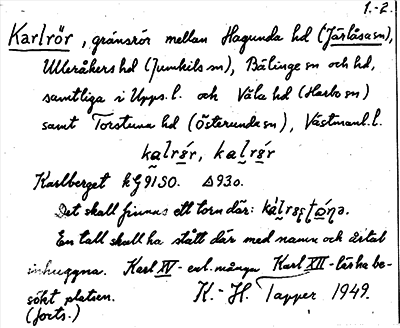 1.-2.
Karlrör, gränsrör mellan Hagunda hd (Järlåsa sn),
Ulleråkers hd (Jumkils sn), Bälinge sn och hd,
samtliga i Upps. l. och Våla hd (Harbo sn)
samt Torstuna hd (Österunda sn), Västmanl. l.
kalrǿr, kalrǿr
Karlberget kG91SO. Δ930.
Det skall finnas ett torn där:
En tall skall ha stått där med namn och årtal
inhuggna. Karl XV - enl. många Karl XII - lär ha be-
sökt platsen. K.-H. Tapper 1949.
(forts.)